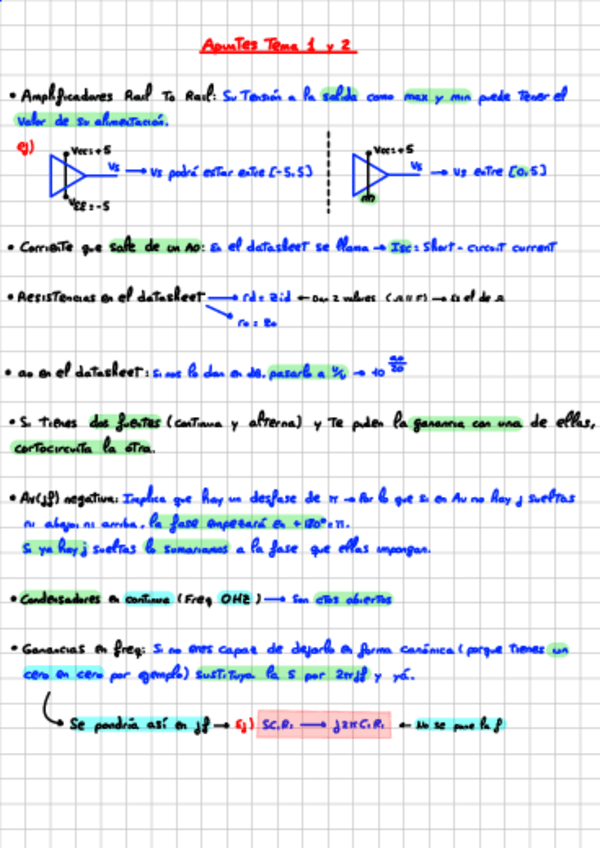 Apuntes Tema 1 y 2
• Amplificadores Rail To Rail: Su Tensión a la salida como max y min puede tener el
valor de su alimentación.
ej)
Vcc=+5
Vs → Vs podrá estar entre [-5,5]
VEE=-5
Vcc=+5
Vs → Vs entre [0,5]
• Corriente que sale de un AO: En el datasheet se llama → Isc: Short-circuit current
• Resistencias en el datasheet → rd = zid ← Dan 2 valores → Es el de
ro = zo
• ao en el datasheet: Si nos lo dan en dB, pasarlo a V/V → 10^ao/20
• Si tienes dos fuentes (continua y alterna) y te piden la ganancia con una de ellas,
cortocircuita la otra.
• Av(jf) negativa: Implica que hay un desfase de π → Por lo que si en Av no hay j sueltas
ni abajo, ni arriba, la fase empezará en +180°=π.
Si ya hay j sueltas lo sumaríamos a la fase que ellas impongan.
• Condensadores en continua (Freq 0HZ) → Son ctos abiertos
• Ganancias en freq: Si no eres capaz de dejarlo en forma canónica (porque tienes un
cero en cero por ejemplo) sustituya la S por 2πjf y ya.
Se pondría así en jf → Ej) SC₁R₁ → j2πC₁R₁ ← No se pone la f